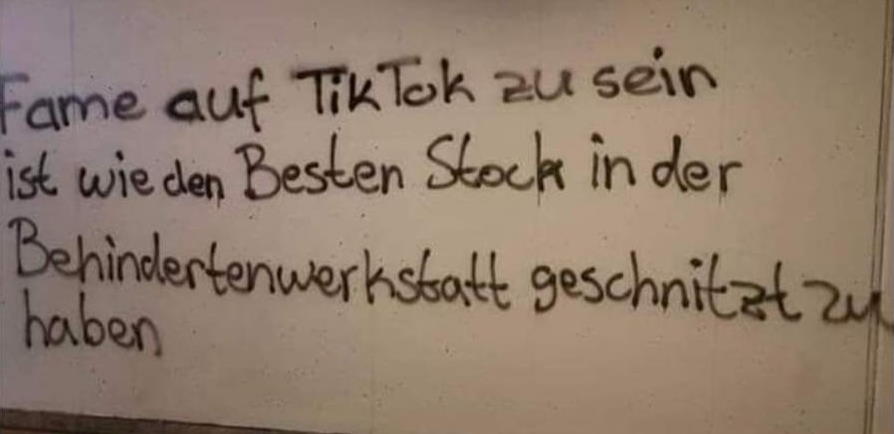 Fame auf TikTok zu sein
ist wie den Besten Stock in der
Behindertenwerkstatt geschnitzt zu
haben